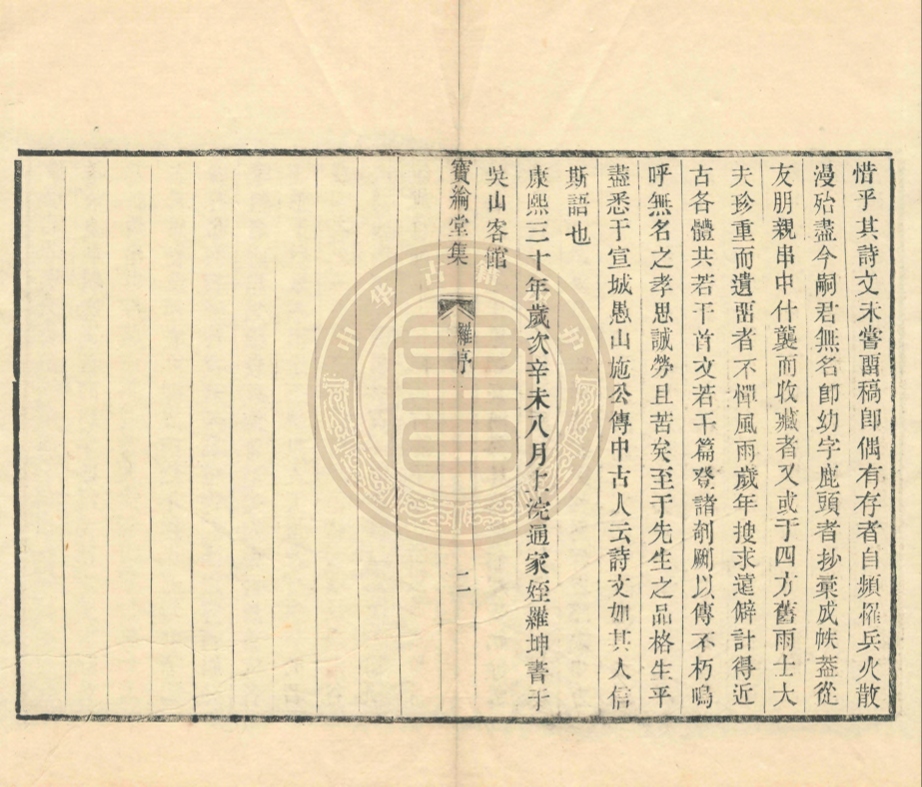 惜乎其詩文未嘗畱稿卽偶有存者自頻罹兵火散
漫殆盡今嗣君無名卽幼字鹿頭者抄彚成帙葢從
友朋親串中什襲而收藏者又或于四方舊雨士大
夫珍重而遺畱者不憚風雨歲年搜求遠僻計得近
古各體共若干首文若干篇登諸剞劂以傳不朽嗚
呼無名之孝思誠勞且苦矣至于先生之品格生平
盡悉于宣城愚山施公傳中古人云詩文如其人信
斯語也
康熙三十年歲次辛未八月上浣通家姪羅坤書于
吳山客館
寶綸堂集
羅序
二
中华古籍
护